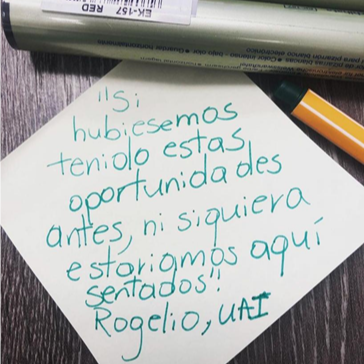 EK-157
RED
"Si
hubiesemos
tenido estas
oportunidades
antes, ni siquiera
estariamos aquí
sentados"
Rogelio, UAI